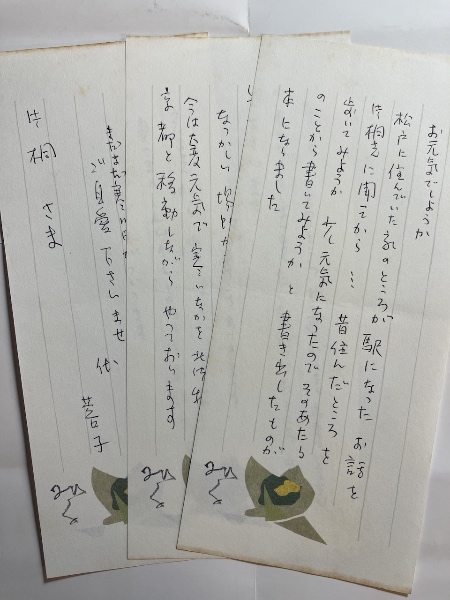 お元気でしょうか
松戸に住んでいた家のところが 駅になった お話を
片桐さんに聞いてから … 昔住んだところを
歩いてみようか 少し元気になったので そのあたり
のことから 書いてみようか と 書き出したものが
本になりました
なつかしい 場所
今は大変元気で
京都と移動しながら やっております
まだまだ寒い
ご自愛下さいませ
片桐 さま